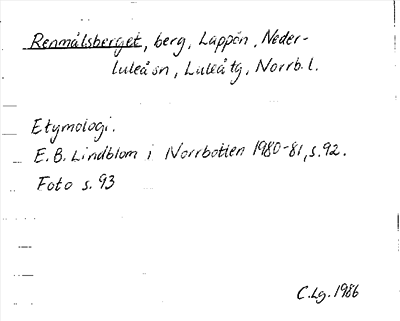 Renmålsberget, berg, Lappön, Neder-
luleå sn, Luleå tg, Norrb. l.
Etymologi.
E. B. Lindblom i Norrbotten 1980-81, s. 92.
Foto s. 93
C. Lg. 1986